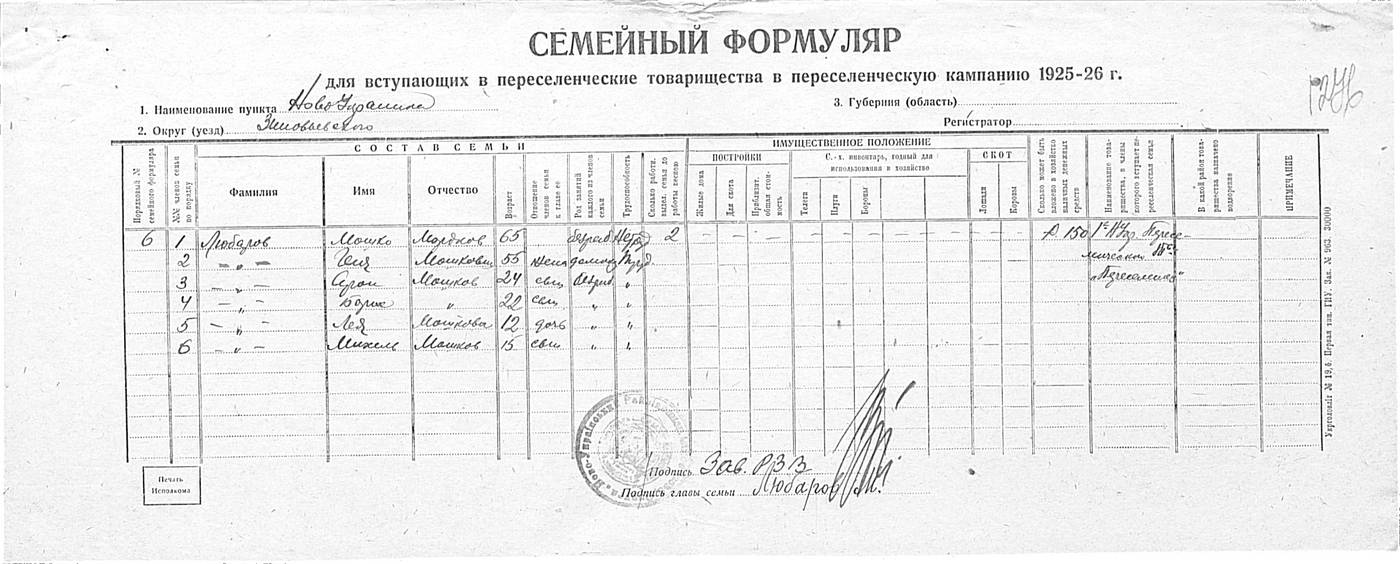 СЕМЕЙНЫЙ ФОРМУЛЯР
для вступающих в переселенческие товарищества в переселенческую кампанию 1925-26 г.
1. Наименование пункта Ново Украинка
3. Губерния (область)
2. Округ (уезд) Зиновьевского
Регистратор
Порядковый № семейного формуляра
№№ членов семьи по порядку
СОСТАВ СЕМЬИ
Фамилия
Имя
Отчество
Возраст
Отношение членов семьи к главе ее
Род занятий каждого из членов семьи
Трудоспособность
Сколько работн. выдел. семья до работы весною
ИМУЩЕСТВЕННОЕ ПОЛОЖЕНИЕ
ПОСТРОЙКИ
Жилые дома
Для скота
Приблизит. общая стоимость
С.-х. инвентарь, годный для использования в хозяйство
Телеги
Плуги
Бороны
СКОТ
Лошади
Коровы
Сколько может быть вложено в хозяйство наличных денежных средств
Наименование товарищества, в члены которого вступает переселенческая семья
В какой район товарищества назначено водворение
ПРИМЕЧАНИЕ
6 1 Любаров Мошко Мордков 65 2 — — — — — — — — — — — 150
2 — „ — Мошков 55 жена
3 — „ — Мошков 24 сын „
4 — „ — „ 22 сын „ „
5 — „ — Лея Мошкова 12 дочь „ „
6 — „ — Михель Мошков 15 сын „ „
„Переселенец“
Печать Исполкома
Подпись Зав. РЗВ
Подпись главы семьи Любаров М.
Укрголовліт № 19,б. Первая тип. ГПУ. Зак. № 963. 30000